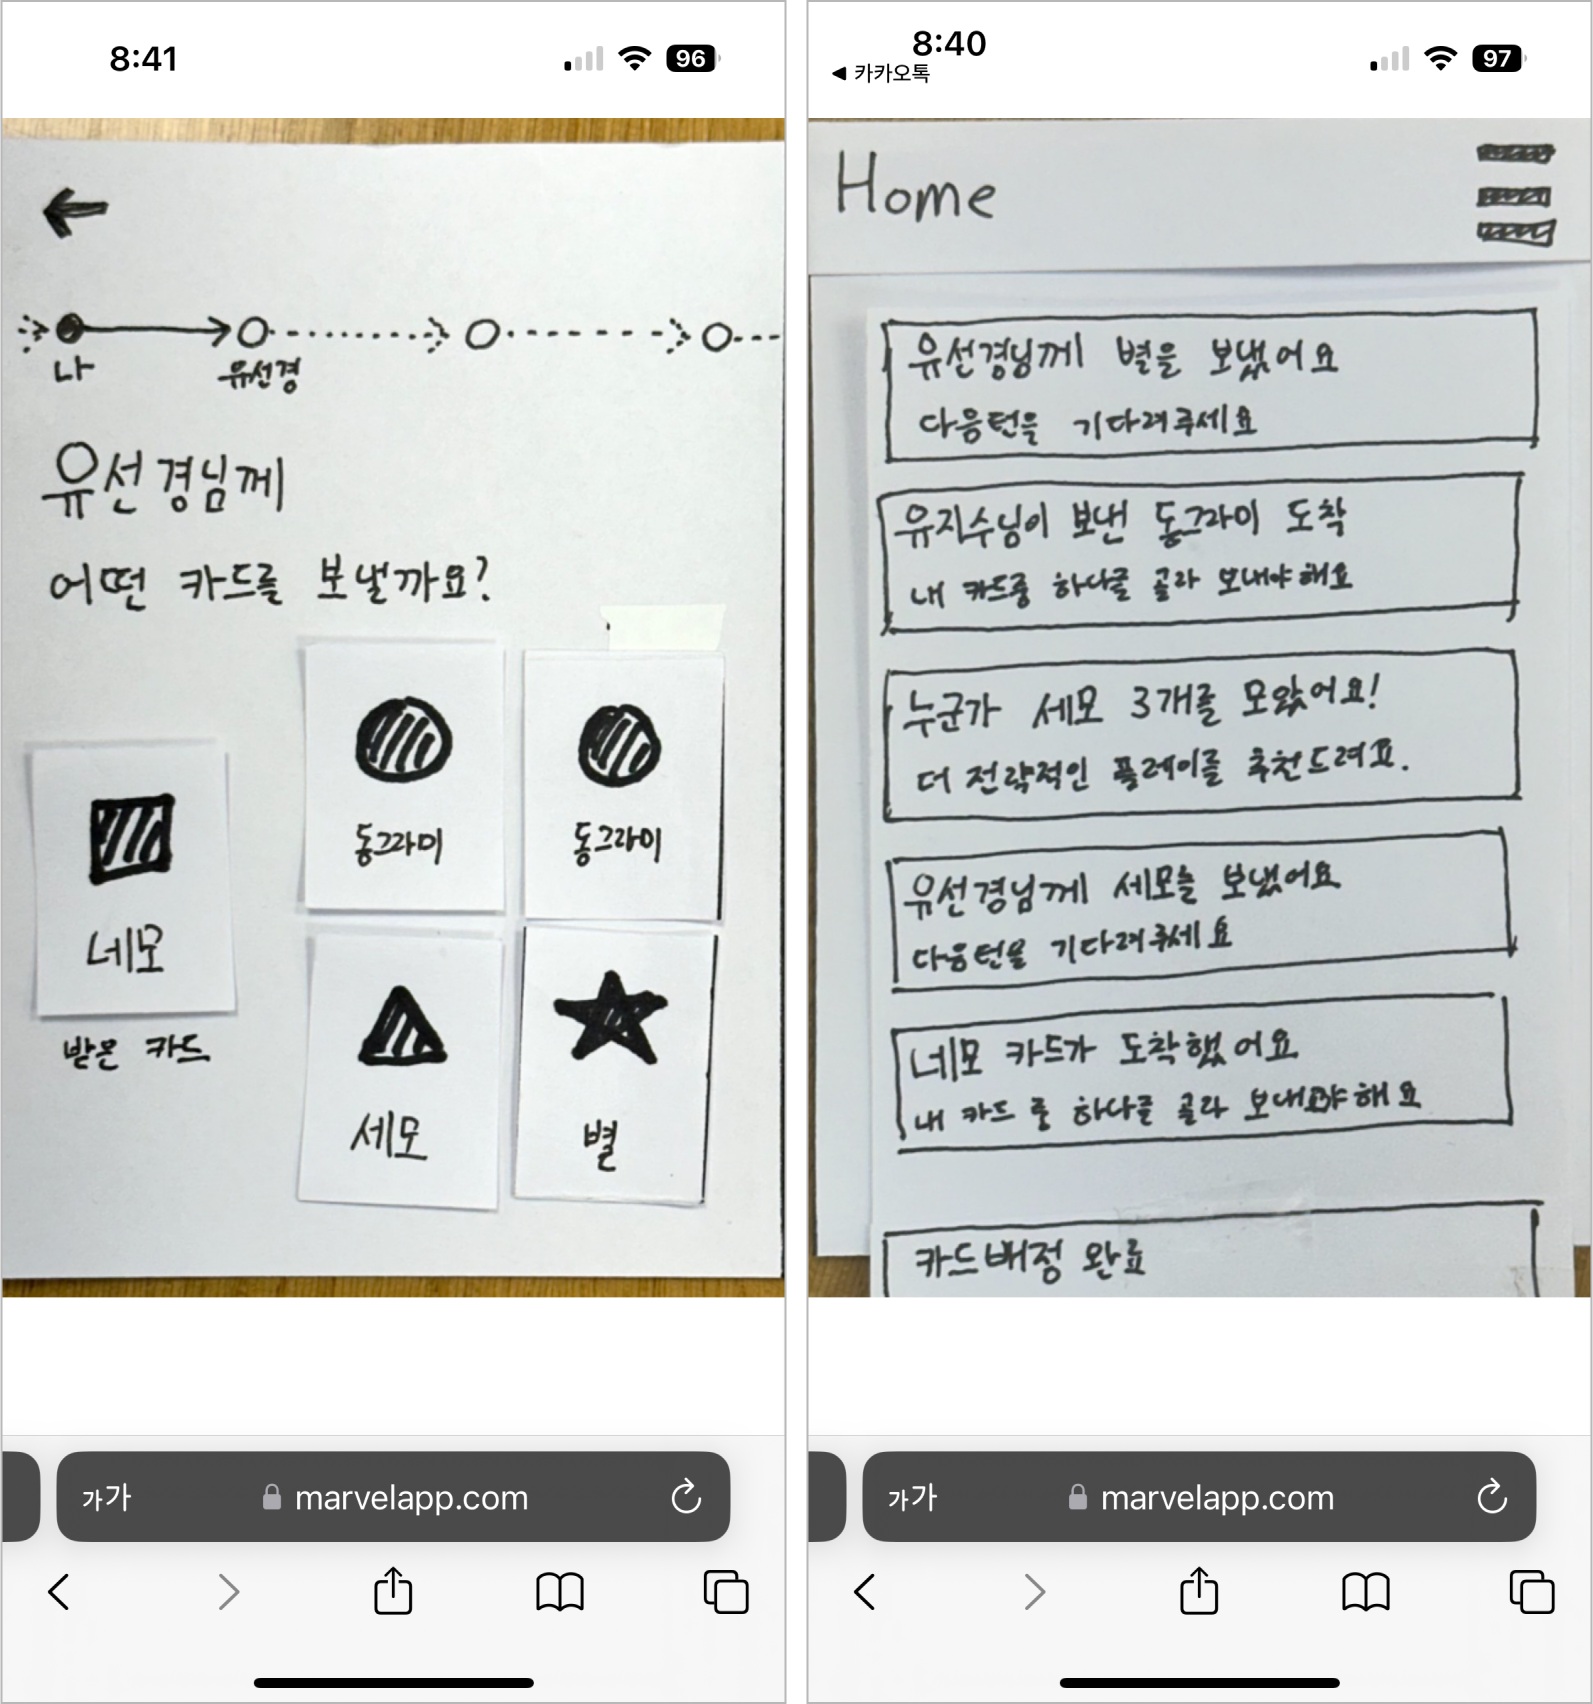 8:41
96
나
유선경
유선경님께
어떤 카드를 보낼까요?
네모
받은 카드
동그라미
동그라미
세모
별
가가
marvelapp.com
8:40
97
◀ 카카오톡
Home
유선경님께 별을 보냈어요
다음턴을 기다려주세요
유지수님이 보낸 동그라미 도착
내 카드중 하나를 골라 보내야해요
누군가 세모 3개를 모았어요!
더 전략적인 플레이를 추천드려요.
유선경님께 세모를 보냈어요
다음턴을 기다려주세요
네모 카드가 도착했어요
내 카드 중 하나를 골라 보내야해요
카드배정 완료
가가
marvelapp.com